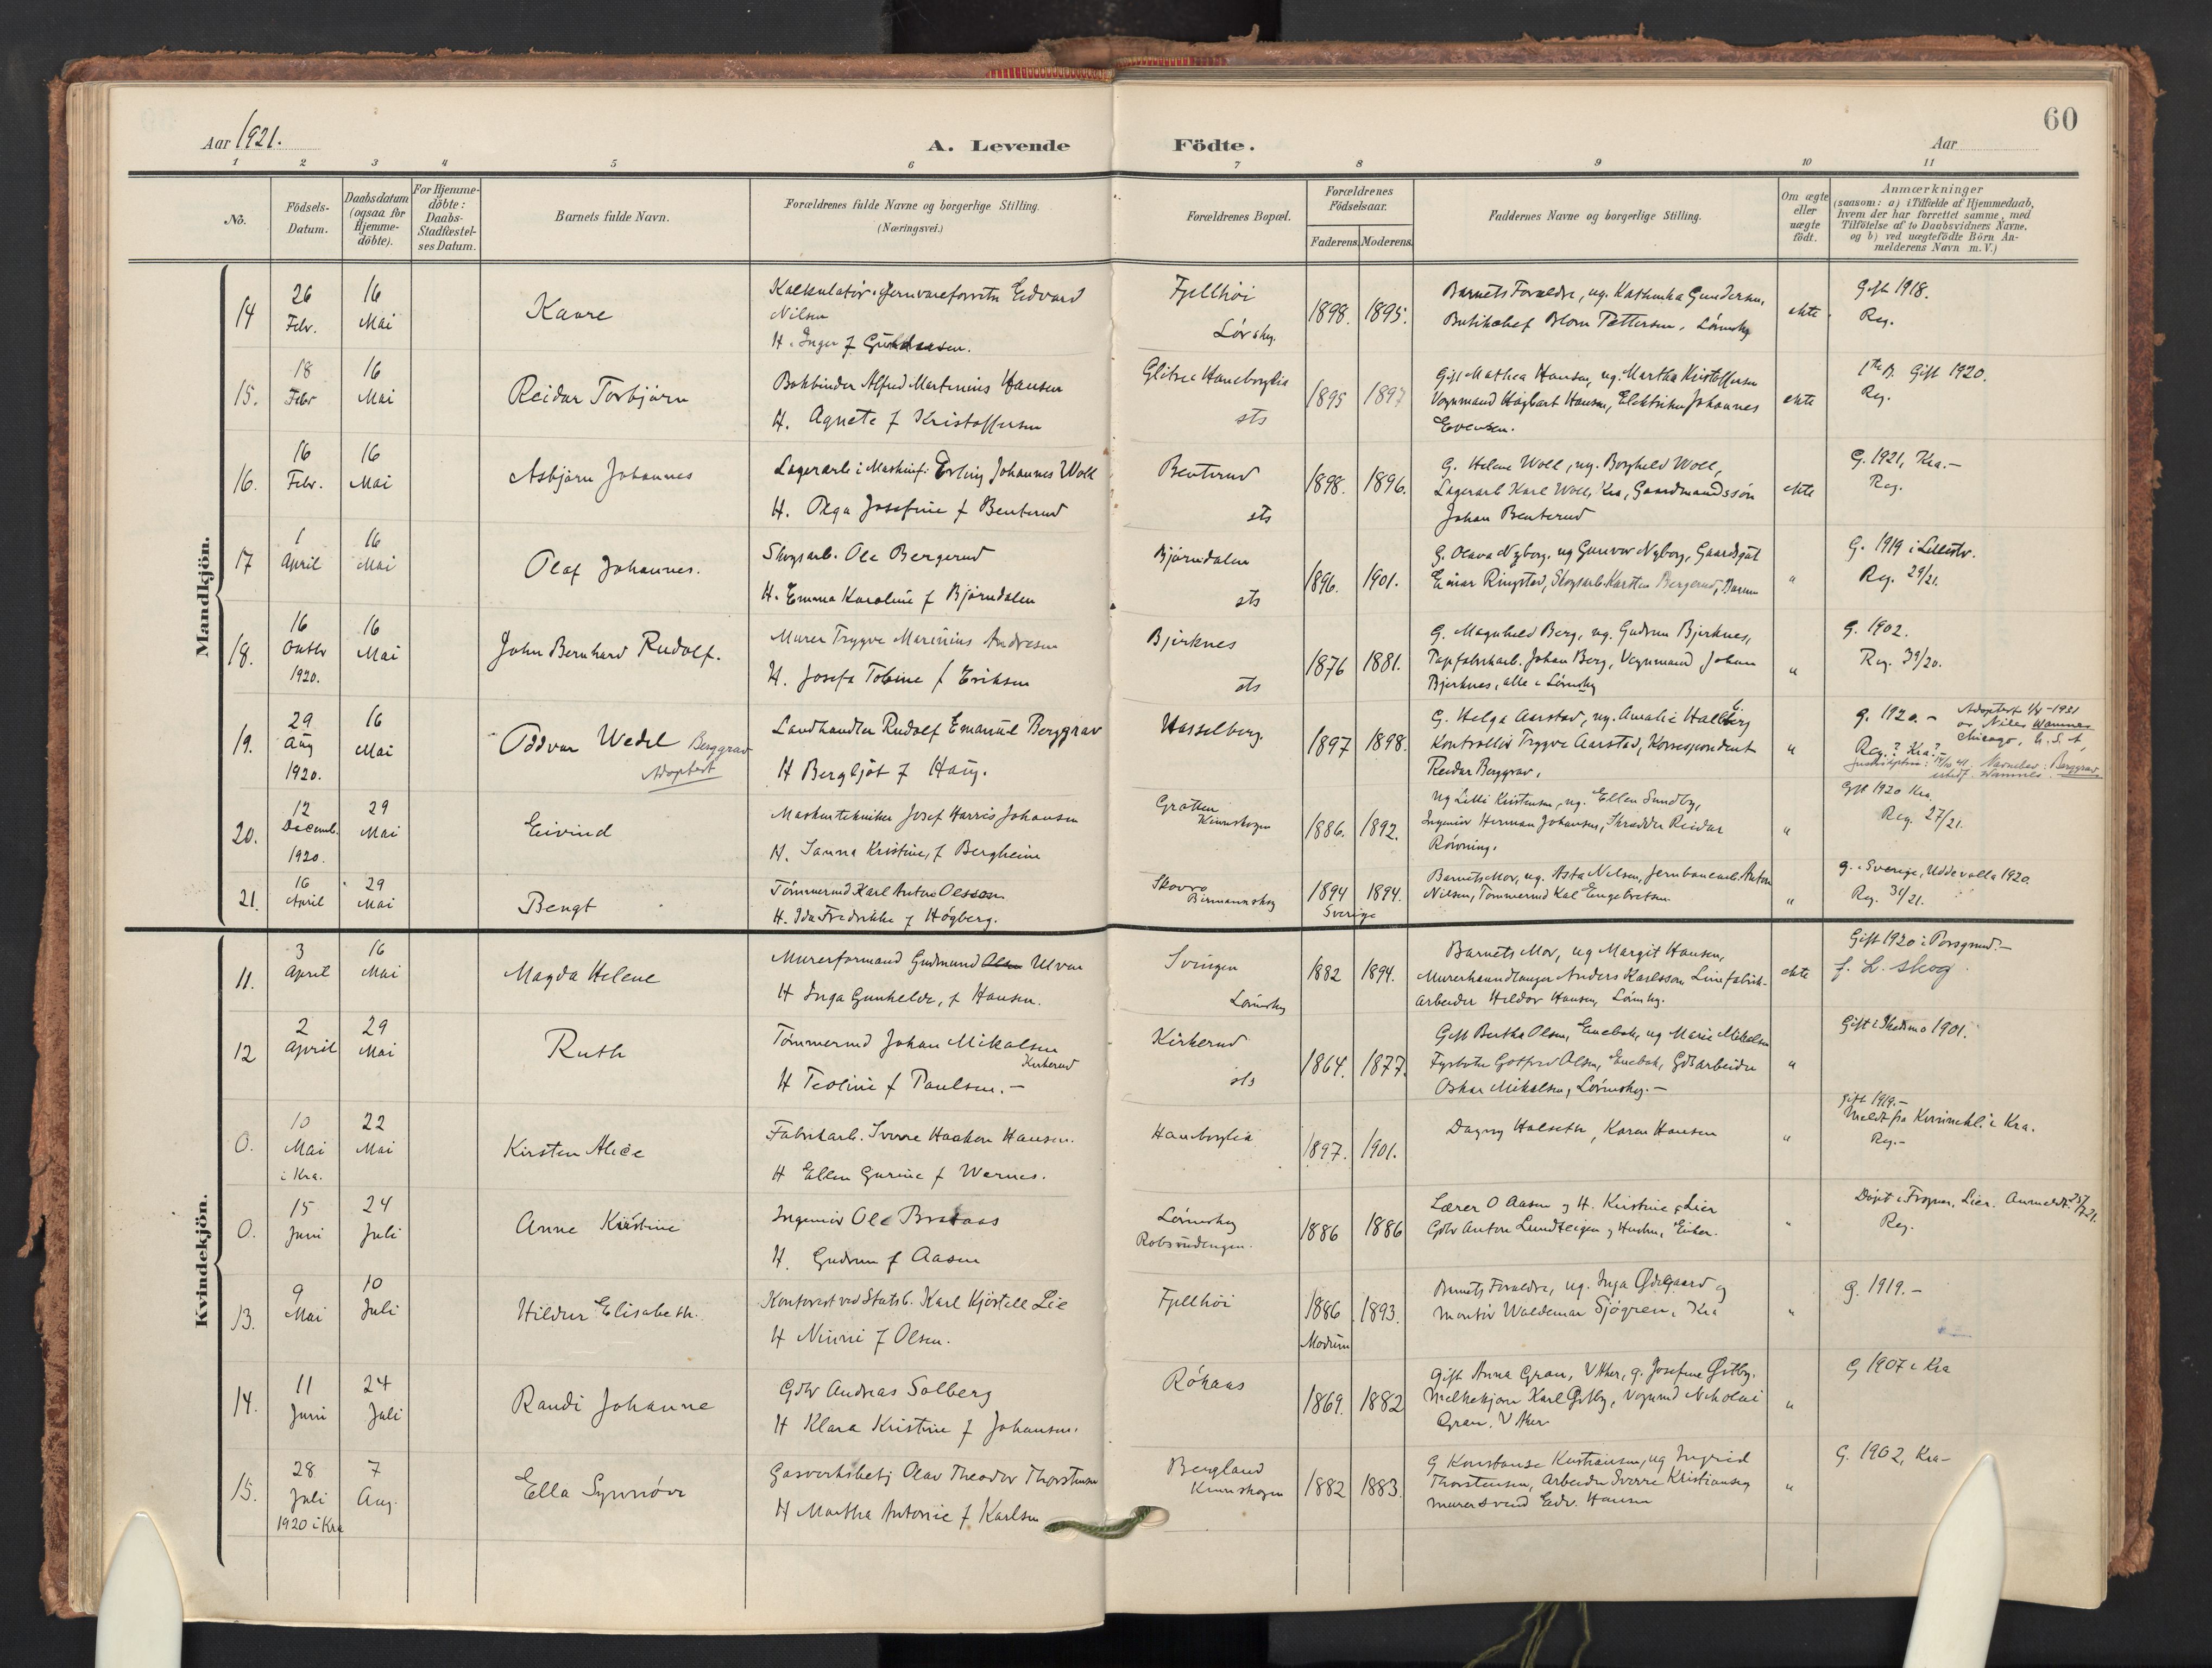 60
Aar 1921.
A. Levende Födte.
Aar
1 2 3 4 5 6 7 8 9 10 11
Nö.
Födsels-Datum.
Daabsdatum (ogsaa for Hjemme-döbte).
For Hjemme-döbte: Daabs-Stadfæstel-ses Datum.
Barnets fulde Navn.
Forældrenes fulde Navne og borgerlige Stilling.
(Næringsvei.)
Forældrenes Bopæl.
Forældrenes Födselsaar.
Faderens. Moderens.
Faddernes Navne og borgerlige Stilling.
Om ægte eller uægte födt.
Anmærkninger
(saasom: a) i Tilfælde af Hjemmedaab,
hvem der har forrettet samme, med
Tilföielse af to Daabsvidners Navne,
og b) ved uægtefödte Börn An-
melderens Navn m. V.)
Mandkjön.
14 26 Febr. 16 Mai Kaare
Edvard
Nilsen
H. Inger f
Fjellhöi
1898. 1895.
Barnets Forældre, ug. Kathinka Gundersen,
Pettersen, Lörnskg
ekte
Gift 1918.
Reg.
15. 18 Febr 16 Mai Reidar Torbjörn
Bokbinder Alfred Martinius Hansen
H. Agnete f Kristoffersen
Glitre Haneborglia
sts
1895 1897
Gift Mathea Hansen, ug. Martha Kristoffersen
Vognmand Hagbart Hansen, Elektriker Johannes
Evensen.
ekte
Gift 1920.
Reg.
16. 16 Febr. 16 Mai Asbjörn Johannes
Lagerarb i Maskinf. Erling Johannes Woll
H. Olga Josefine f Benterud
Benterud
sts
1898. 1896.
G. Helene Woll, ug. Borghild Woll,
Lagerarb Karl Woll, Kra, Gaardmandssön
Johan Benterud
ekte
G. 1921, Kra.-
Reg.
17 1 April 16 Mai Olaf Johannes.
Skogsarb. Ole Bergerud
H. Emma Karoline f Bjørndalen
Bjørndalen
sts
1896. 1901.
G. Olava Nyborg, ug Gunvor Nyborg, Gaardsgut
Einar Ringstad, Skogsarb Karsten Bergerud, Bærum
"
G. 1919 i Lillestr.
Reg. 29/21.
18. 16 Oktbr 1920. 16 Mai John Bernhard Rudolf.
Murer Trygve Marinius Andresen
H. Josefa Tobine f Eriksen
Bjerknes
sts
1876 1881.
G. Magnhild Berg, ug. Gudrun Bjerknes,
Tapfabrikarb. Johan Berg, Vognmand Johan
Bjerknes, alle i Lörnskg
"
G. 1902.
Reg. 39/20.
19. 29 Aug 1920. 16 Mai Oddvar Wedel Berggrav
Adoptert
Landhandler Rudolf Emanuel Berggrav
H Bergljot f Haug.
Hasselberg.
1897 1898.
G. Helga Aarstad, ug. Amalie Hallberg
Kontrollör Trygve Aarstad, Korrespondent
Reidar Berggrav.
"
g. 1920. -
av Niles Wamnes
Chicago, U. S. A,
Reg.? Kra?
Navnebev: Berggrav
Wamnes
20. 12 Decemb. 1920. 29 Mai Eivind
Maskintekniker Josef Harris Johansen
H. Sanna Kristine, f Bergheim
Gratten
Kinnskogen
1886. 1892.
Ug Lilli Kristensen, ug. Ellen Sundby,
Ingeniör Herman Johansen, Skrædder Reidar
Rövning.
"
Gift 1920 Kra.
Reg. 27/21.
21. 16 April 29 Mai Bengt
Tömmermd Karl Anton Olsson
H. Ida Fredrikke f Högberg.
Skovro
1894 1894.
Sverige
Barnets Mor, ug. Asta Nilsen, Jernbanearb. Anton
Nilsen, Tømmermd Kal Engebretsen
"
g. i Sverige, Uddevalla 1920.
Reg. 31/21.
Kvindekjön.
11. 3 April 16 Mai Magda Helene
Murerformand Gudmund Ulven
H Inga Gunhilde, f Hansen.
Svingen
Lörnskg
1882 1894.
Barnets Mor, ug Margit Hansen,
Murerhaandlanger Anders Karlsson, Limfabrik-
arbeider Hildor Hansen, Lörnskg.
ekte
Gift 1920 i Porsgrund.-
f. L. skog.
12 2 April 29 Mai Ruth
Tömmermd Johan Mikalsen
Kirkerud
H Teoline f Paulsen.-
Kirkerud
sts
1864. 1877.
Gift Bertha Olsen, Enebak, ug Marie Mikalsen
Fyrböter Gotfred Olsen, Enebak, Gdsarbeider
Oskar Mikalsen, Lörnskog.-
"
Gift i Skedsmo 1901.
0. 10 Mai i Kra. 22 Mai Kirsten Alice
Fabrikarb. Sverre Haakon Hansen.
H Ellen Gurine f Wernes.
Haneborglia
1897. 1901.
Dagny Halseth, Karen Hansen
"
gift 1919.-
Meldt fra Kvinnekl. i Kra.
Reg.-
0. 15 Juni 24 Juli Anne Kristine
Ingeniör Ole Brataas
H. Gudrun f Aasen
Lörnskg
Robsrudengen.
1886 1886
Lærer O Aasen og H. Kristine, Lier
Gdbr Anton Lundteigen og Hustru, Eiker.
"
Döpt i Frogner, Lier. Anmeldt 25/7 21.
Reg.
13. 9 Mai 10 Juli Hildur Elisabeth.
Kontorist ved Statsb. Karl Kjöstell Lie
H Ninni f Olsen.
Fjellhöi
1886 1893.
Modum
Barnets Forældre, ug. Inga Ødegaard og
Montör Waldemar Sjögren, Kra
"
g. 1919.-
14. 11 Juni 24 Juli Randi Johanne
Gdbr Andreas Solberg
H Klara Kristine f Johansen.
Röhaas
1869. 1882
Gift Anna Gran, V Aker, g. Josefine Østby.
Melkekjörer Karl Østby, Vognmd Nikolai
Gran, V Aker
"
G 1907 i Kra
15. 28 Juli 1920 i Kra 7 Aug. Ella Synnöve
Gasverksbetj Olav Theodor Thorstensen
H Martha Antonie f Karlsen
Bergland
Kinnskogen
1882 1883.
G Konstanse Kristiansen, ug Ingrid
Thorstensen, Arbeider Sverre Kristiansen
Murersvend Edv. Hansen
"
G. 1902, Kra-